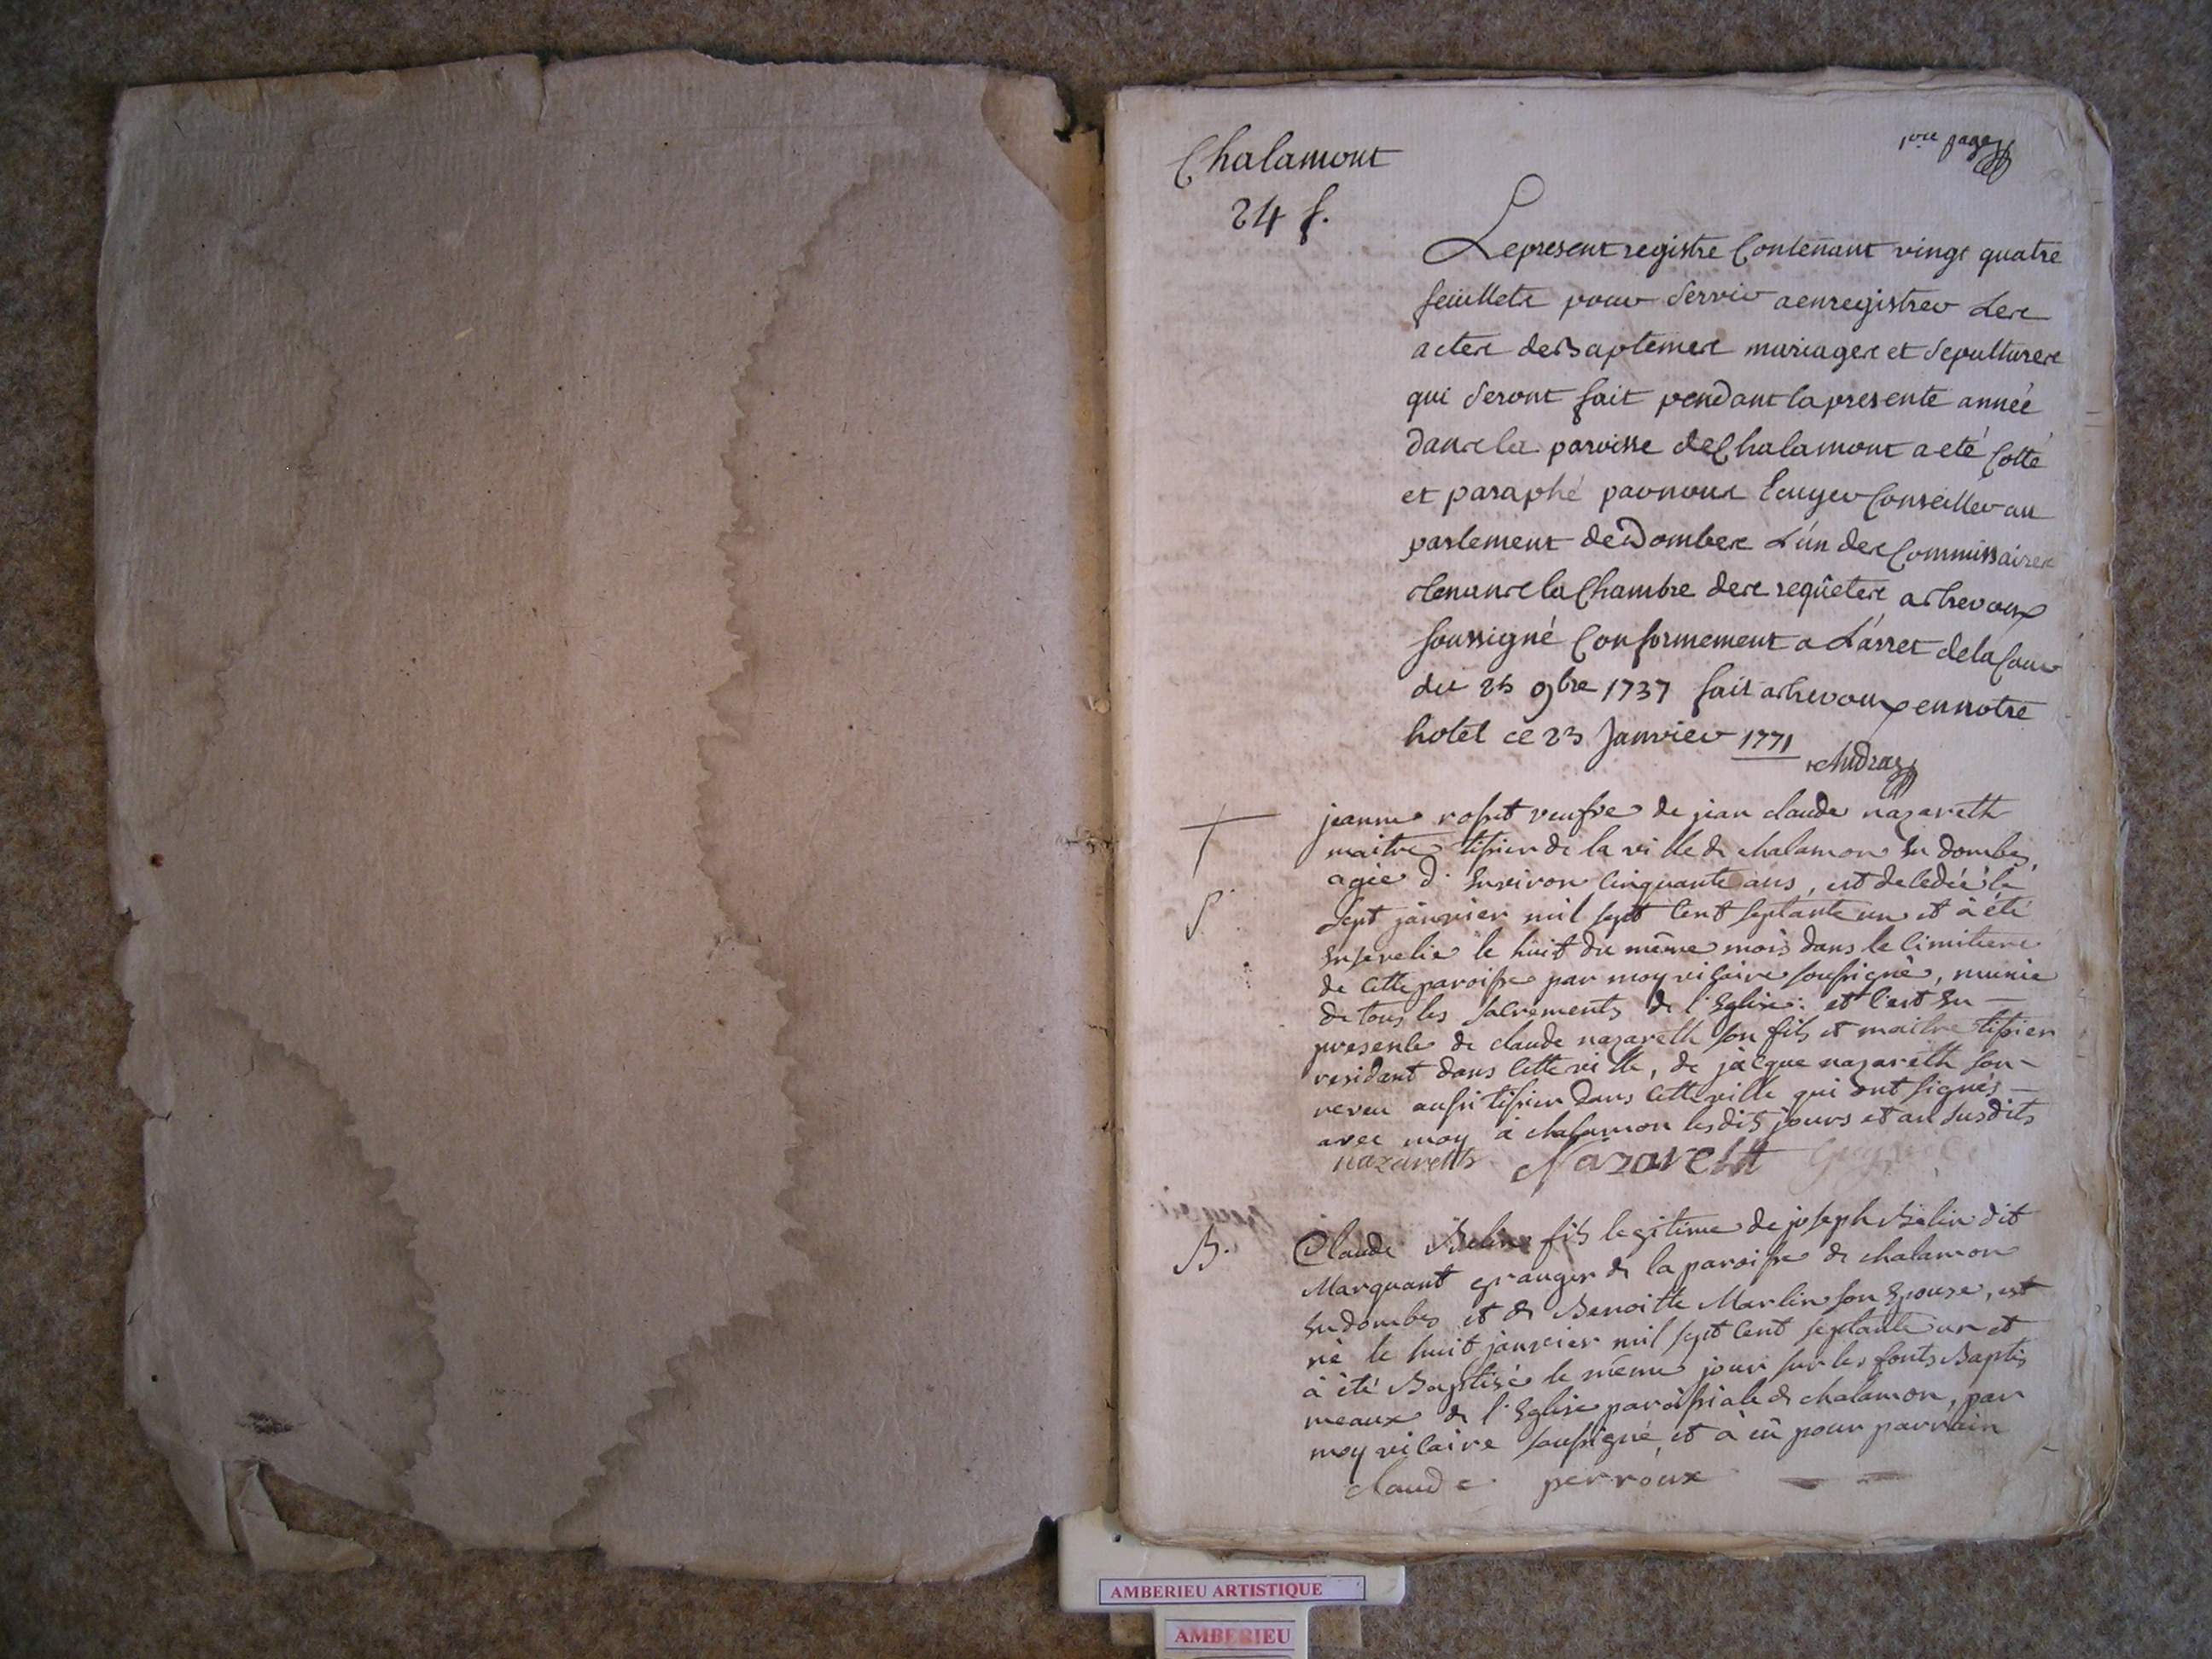 Chalamont
24 f.
1ere page
Le present registre Contenant vingt quatre
feuillets pour servir a enregistrer Les
actes de Baptemes mariages et sepultures
qui seront fait pendant la presente année
dans la paroisse de Chalamont a eté Cotté
et paraphé par nous Ecuyer Conseiller au
parlement de Dombes L'un des Commissaires
tenans la Chambre des requêtes a trevoux
soussigné Conformement a L'arret de la Cour
du 25 9bre 1737 fait a trevoux en notre
hotel ce 23 Janvier 1771
jeanne veufve de jean claude nazareth
maitre tisier de la ville de chalamon en dombes,
agée d'environ cinquante ans, est decedée le
sept janvier mil sept cent septante un et à été
ensevelie le huit du même mois dans le cimitiere
de cette paroisse par moy vicaire soussigné, munie
de tous les sacrements de l'eglise: et c'est en
presence de claude nazareth son fils et maitre tisier
residant dans cette ville, de jacque nazareth son
neveu aussi tisier dans cette ville qui ont signés
avec moy à chalamon lesdits jours et an susdits
nazareth Nazareth
S.
B.
Claude Belin fils legitime de joseph Belin dit
Marquant granger de la paroisse de chalamon
en dombes et de Benoitte Marlin son epouse, est
né le huit janvier mil sept cent septante un et
à été Baptisé le même jour sur les fonts Baptis
meaux de l'eglise paroissiale de chalamon, par
moy vicaire soussigné, et à eû pour parrain
claude perroux
AMBERIEU ARTISTIQUE
AMBERIEU